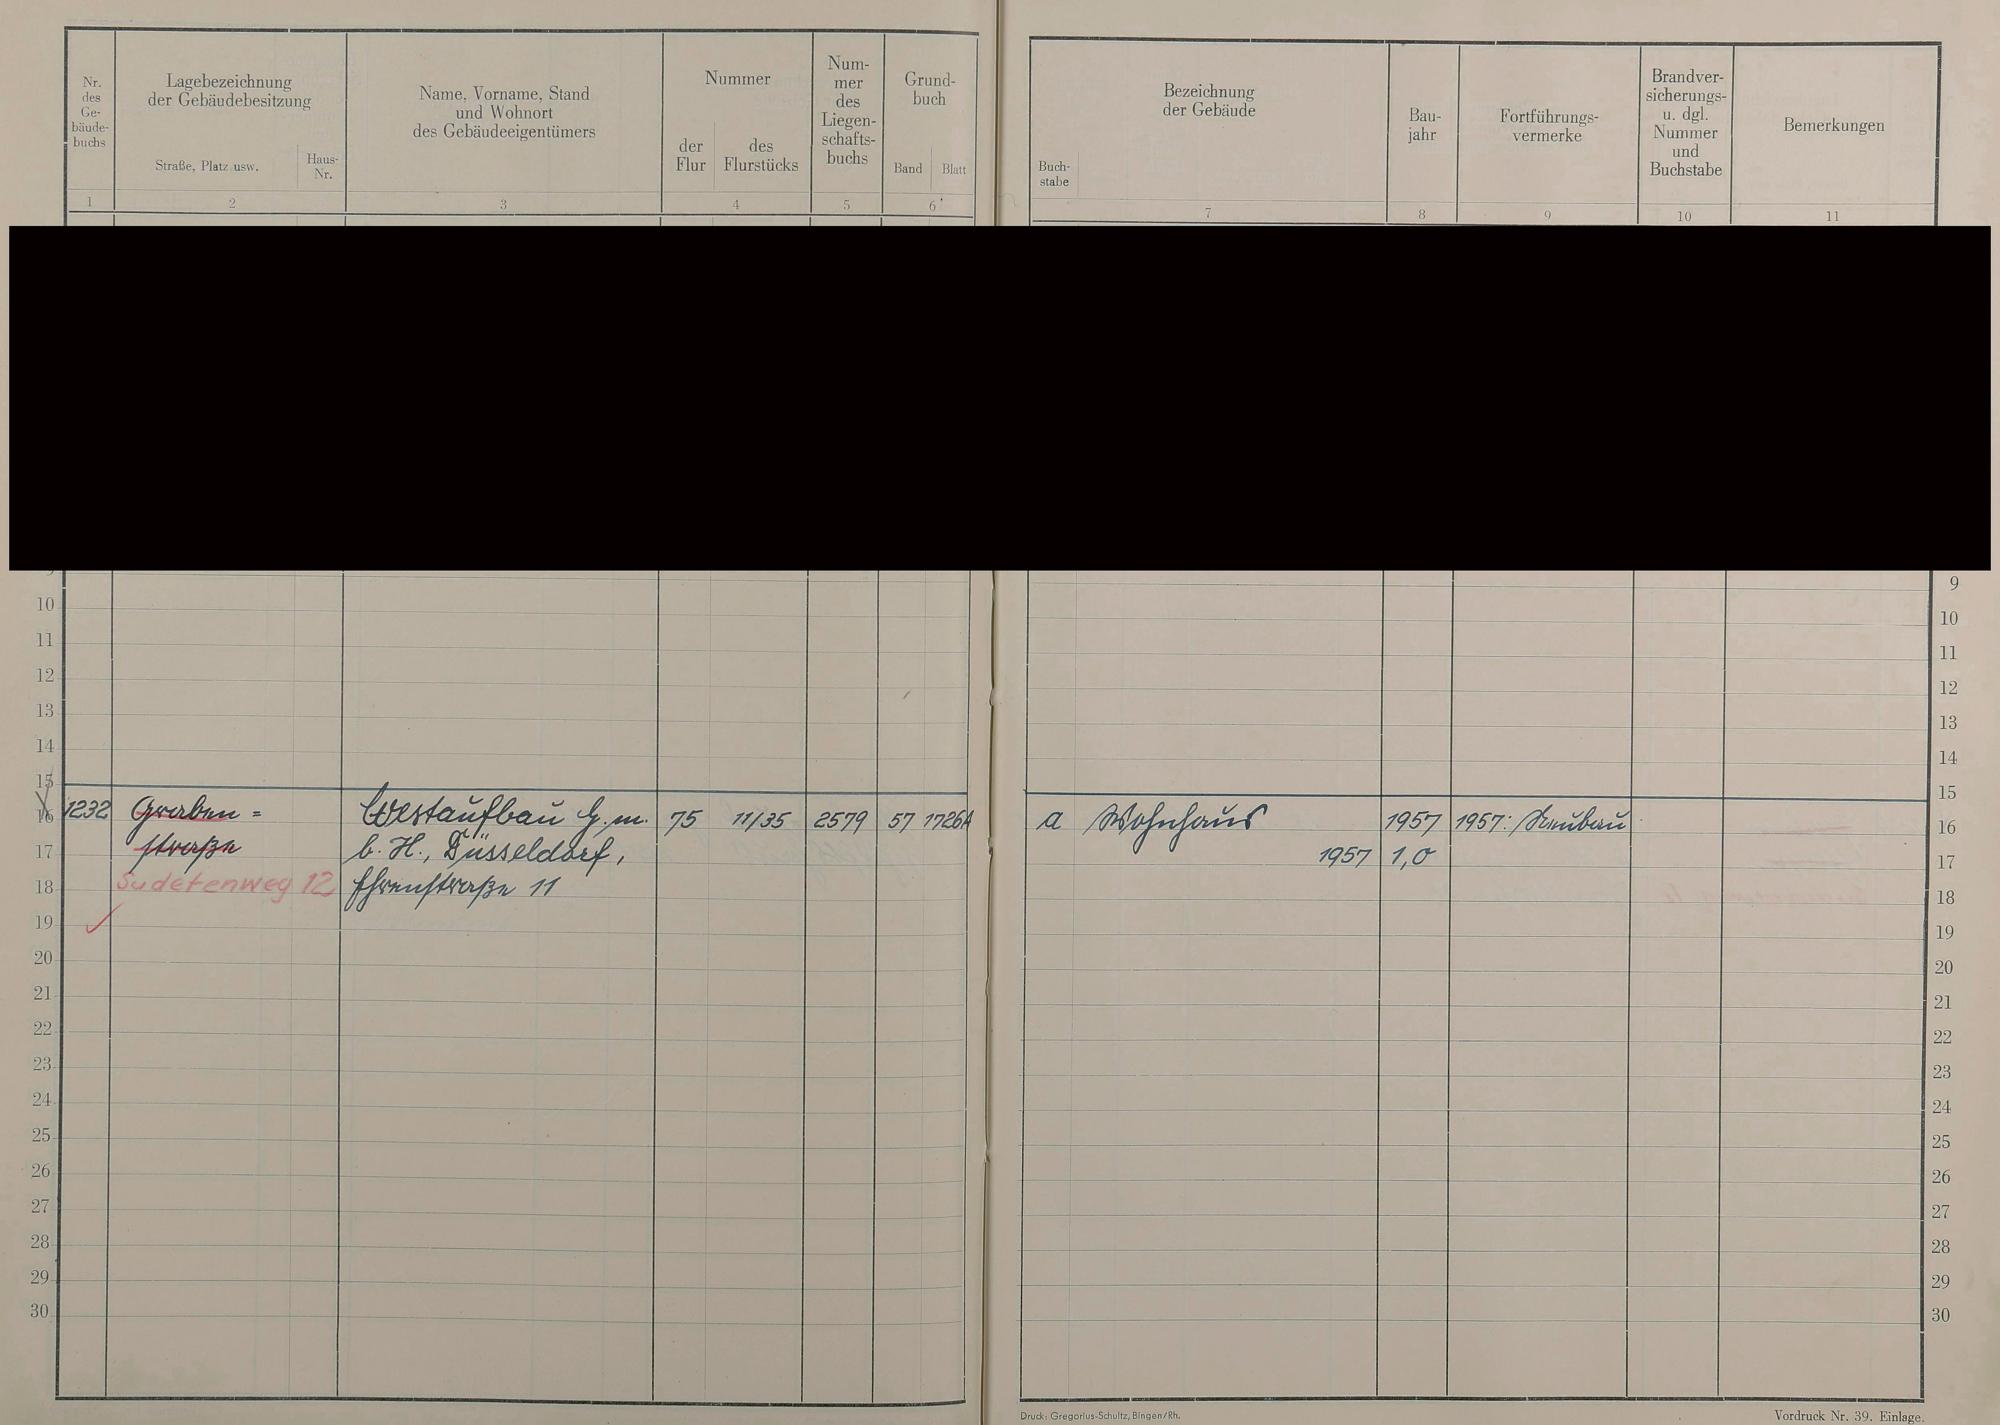 Nr. des Ge- bäude- buchs
Lagebezeichnung
der Gebäudebesitzung
Straße, Platz usw.
Haus- Nr.
Name, Vorname, Stand
und Wohnort
des Gebäudeeigentümers
Nummer
der Flur
des Flurstücks
Num- mer des Liegen- schafts- buchs
Grund- buch
Band
Blatt
1 2 3 4 5 6
Buch- stabe
Bezeichnung
der Gebäude
Bau- jahr
Fortführungs- vermerke
Brandver- sicherungs- u. dgl. Nummer und Buchstabe
Bemerkungen
7 8 9 10 11
9 9
10 10
11 11
12 12
13 13
14 14
15 15
16 1232 Graben= Westaufbau G.m. 75 11/35 2579 57 1726A a Wohnhaus 1957 1957: Neubau 16
17 straße b.H., Düsseldorf, 1957 1,0 17
18 Sudetenweg 12 Ehrenstraße 11 18
19 19
20 20
21 21
22 22
23 23
24 24
25 25
26 26
27 27
28 28
29 29
30 30
Druck: Gregorius-Schultz, Bingen/Rh.
Vordruck Nr. 39. Einlage.